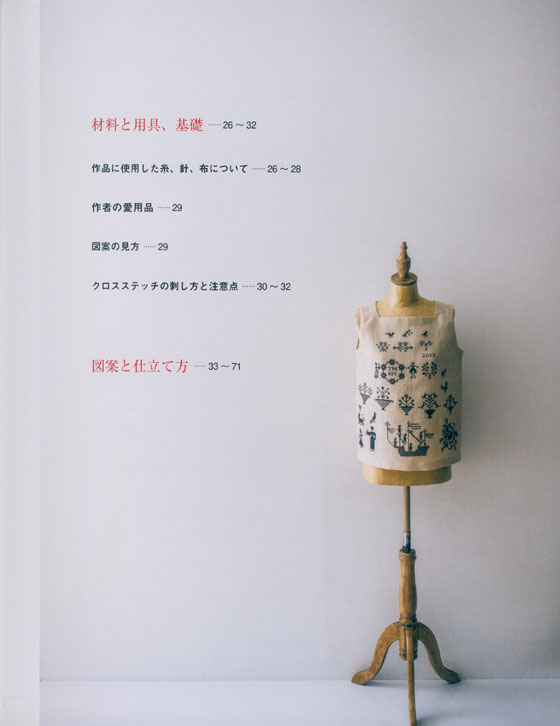 材料と用具、基礎 ……26～32
作品に使用した糸、針、布について ……26～28
作者の愛用品 ……29
図案の見方 ……29
クロスステッチの刺し方と注意点 ……30～32
図案と仕立て方 ……33～71